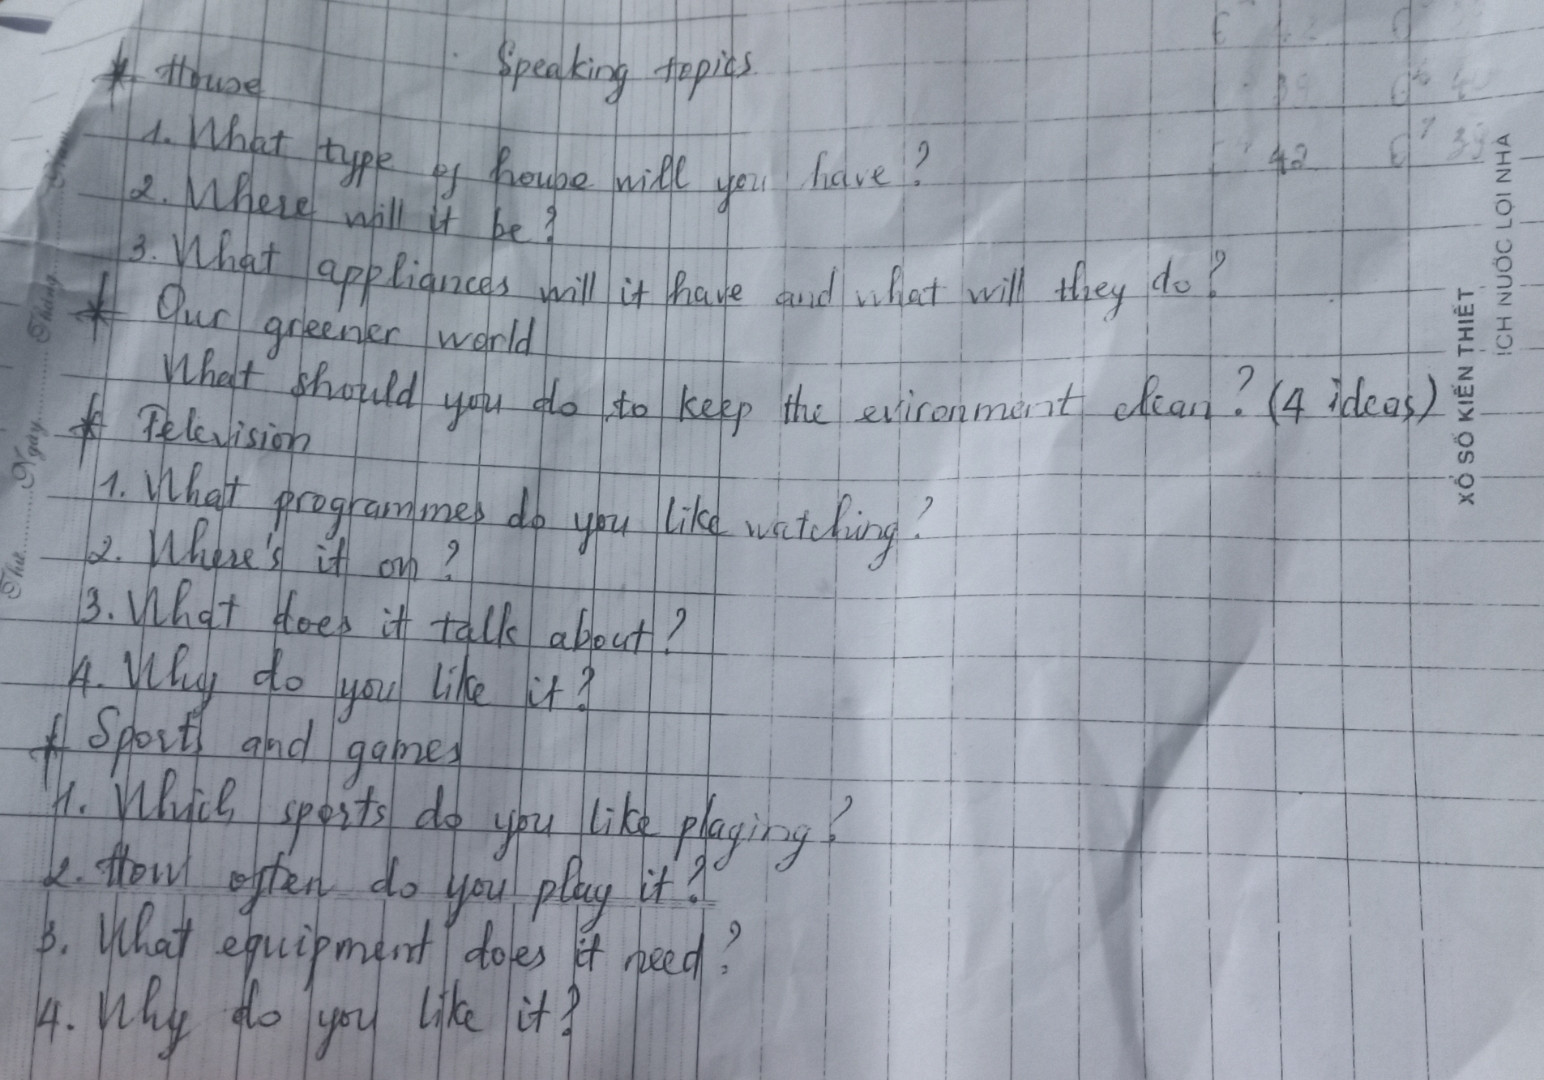 Speaking topics
* House
1. What type of house will you have?
2. Where will it be?
3. What appliances will it have and what will they do?
* Our greener world
What should you do to keep the evironment clean? (4 ideas)
* Television
1. What programmes do you like watching?
2. Where's it on?
3. What does it talk about?
4. Why do you like it?
* Sports and games
1. Which sports do you like playing?
2. How often do you play it?
3. What equipment does it need?
4. Why do you like it?
42
XỔ SỐ KIẾN THIẾT
ÍCH NƯỚC LỢI NHÀ
Thứ......Ngày......Tháng......